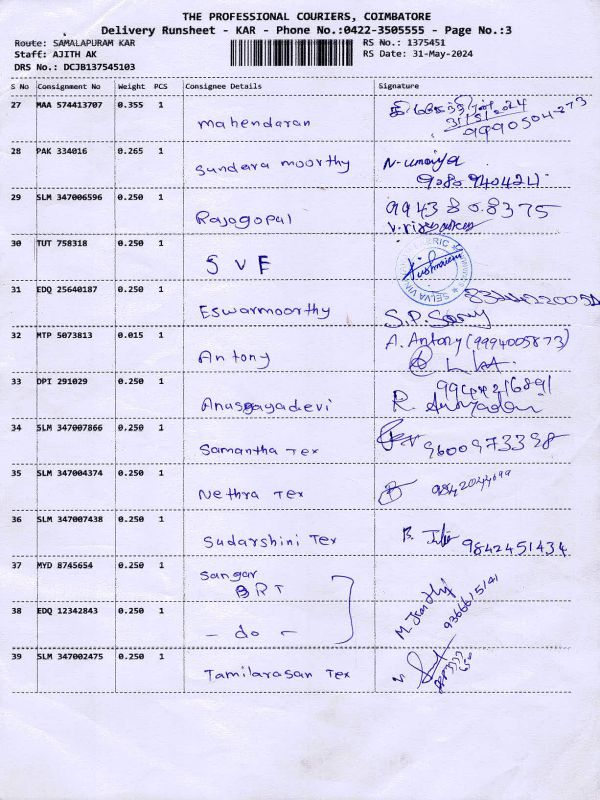 THE PROFESSIONAL COURIERS, COIMBATORE
Delivery Runsheet - KAR - Phone No.:0422-3505555 - Page No.:3
Route: SAMALAPURAM KAR
RS No.: 1375451
Staff: AJITH AK
RS Date: 31-May-2024
DRS No.: DCJB137545103
S No Consignment No Weight PCS Consignee Details Signature
27 MAA 574413707 0.355 1 Mahendaran 31/5/2024
28 PAK 334016 0.265 1 Sundara moorthy N-umaiya
9080940424
29 SLM 347006596 0.250 1 Rajagopal 9943808375
30 TUT 758318 0.250 1 SVF
31 EDQ 25640187 0.250 1 Eswarmoorthy S.P.Samy
32 MTP 5073813 0.015 1 Antony A. Antony (9994005873)
33 DPI 291029 0.250 1 Anasuyadevi R.
34 SLM 347007866 0.250 1 Samantha Tex 9600973398
35 SLM 347004374 0.250 1 Nethra Tex
36 SLM 347007438 0.250 1 Sudarshini Tex B. 9842451434
37 MYD 8745654 0.250 1 Sangar
BRT
38 EDQ 12342843 0.250 1 - do - M. 9366615141
39 SLM 347002475 0.250 1 Tamilarasan Tex